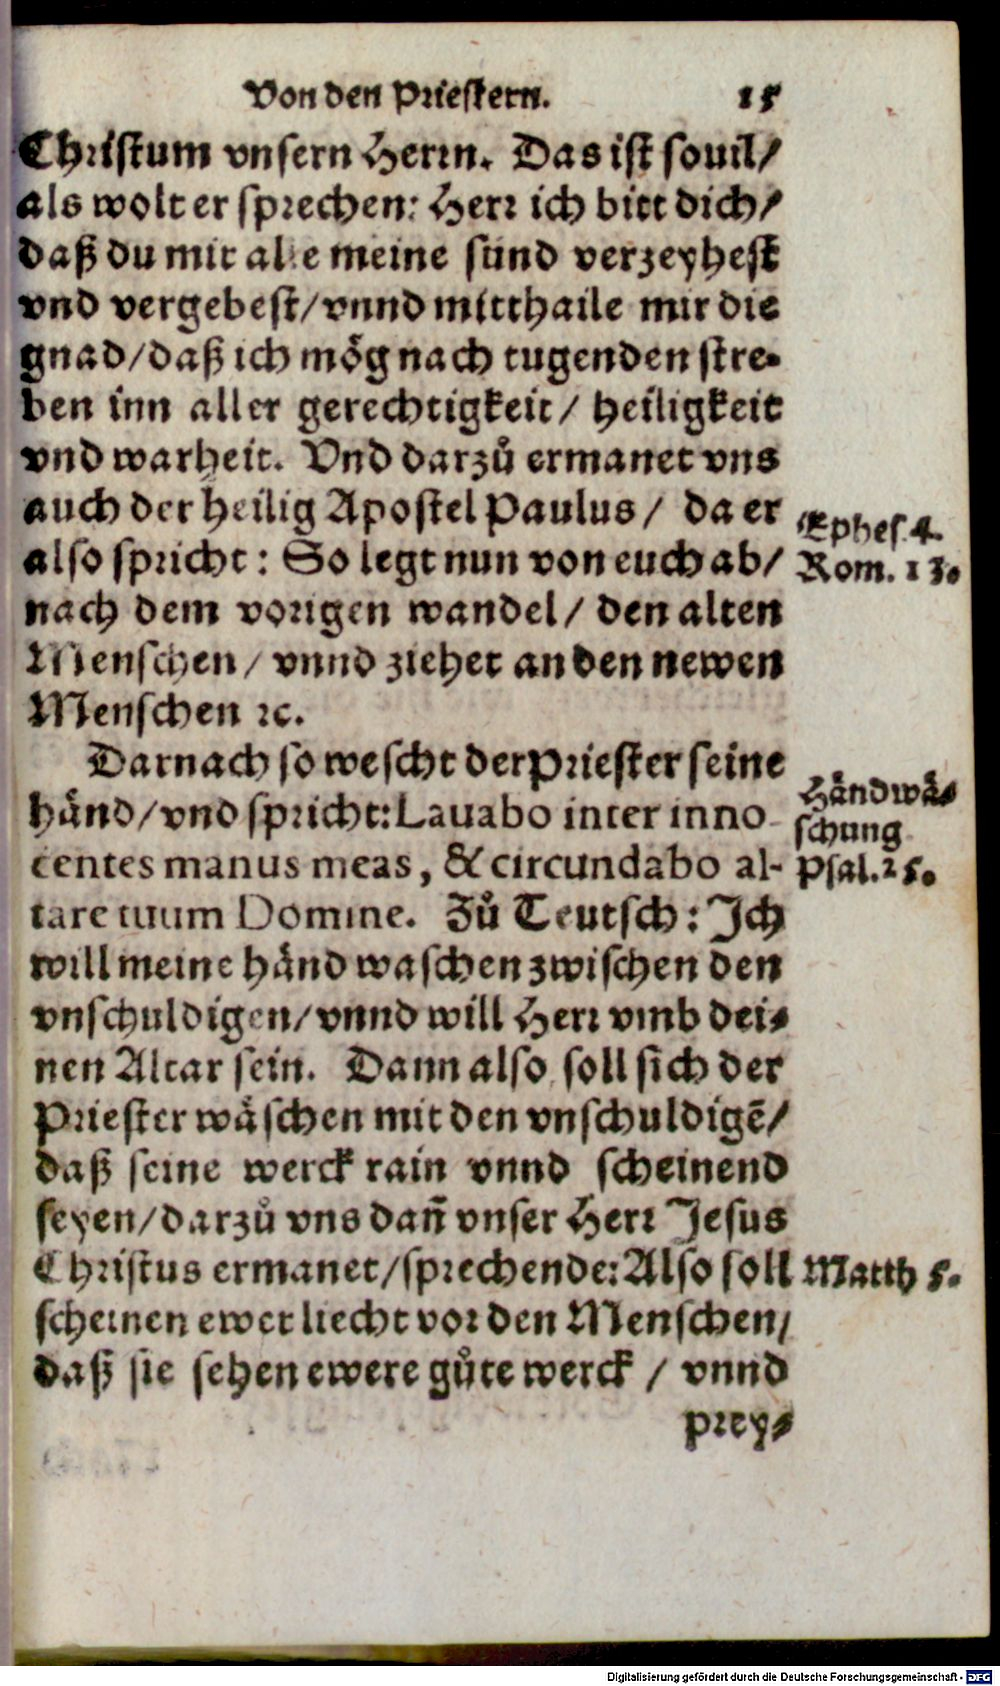 Von den Priestern. 15
Christum vnsern Herrn. Das ist souil/
als wolt er sprechen: Herr ich bitt dich/
daß du mir alle meine sünd verzeyhest
vnd vergebest/vnnd mitthaile mir die
gnad/daß ich mög nach tugenden stre-
ben inn aller gerechtigkeit/ heiligkeit
vnd warheit. Vnd darzů ermanet vns
auch der heilig Apostel Paulus/ da er
also spricht: So legt nun von euch ab/
Ephes. 4.
Rom. 13.
nach dem vorigen wandel/ den alten
Menschen/ vnnd ziehet an den newen
Menschen ꝛc.
Darnach so wescht der Priester seine
händ/vnd spricht: Lauabo inter inno-
centes manus meas, & circundabo al-
Händwä-
schung
Psal. 25.
tare tuum Domine. Zů Teutsch: Ich
will meine händ waschen zwischen den
vnschuldigen/vnnd will Herr vmb dei-
nen Altar sein. Dann also soll sich der
Priester wäschen mit den vnschuldigẽ/
daß seine werck rain vnnd scheinend
seyen/darzů vns dañ vnser Herr Jesus
Christus ermanet/sprechende: Also soll
Matth 5.
scheinen ewer liecht vor den Menschen/
daß sie sehen ewere gůte werck/ vnnd
prey-
Digitalisierung gefördert durch die Deutsche Forschungsgemeinschaft - DFG